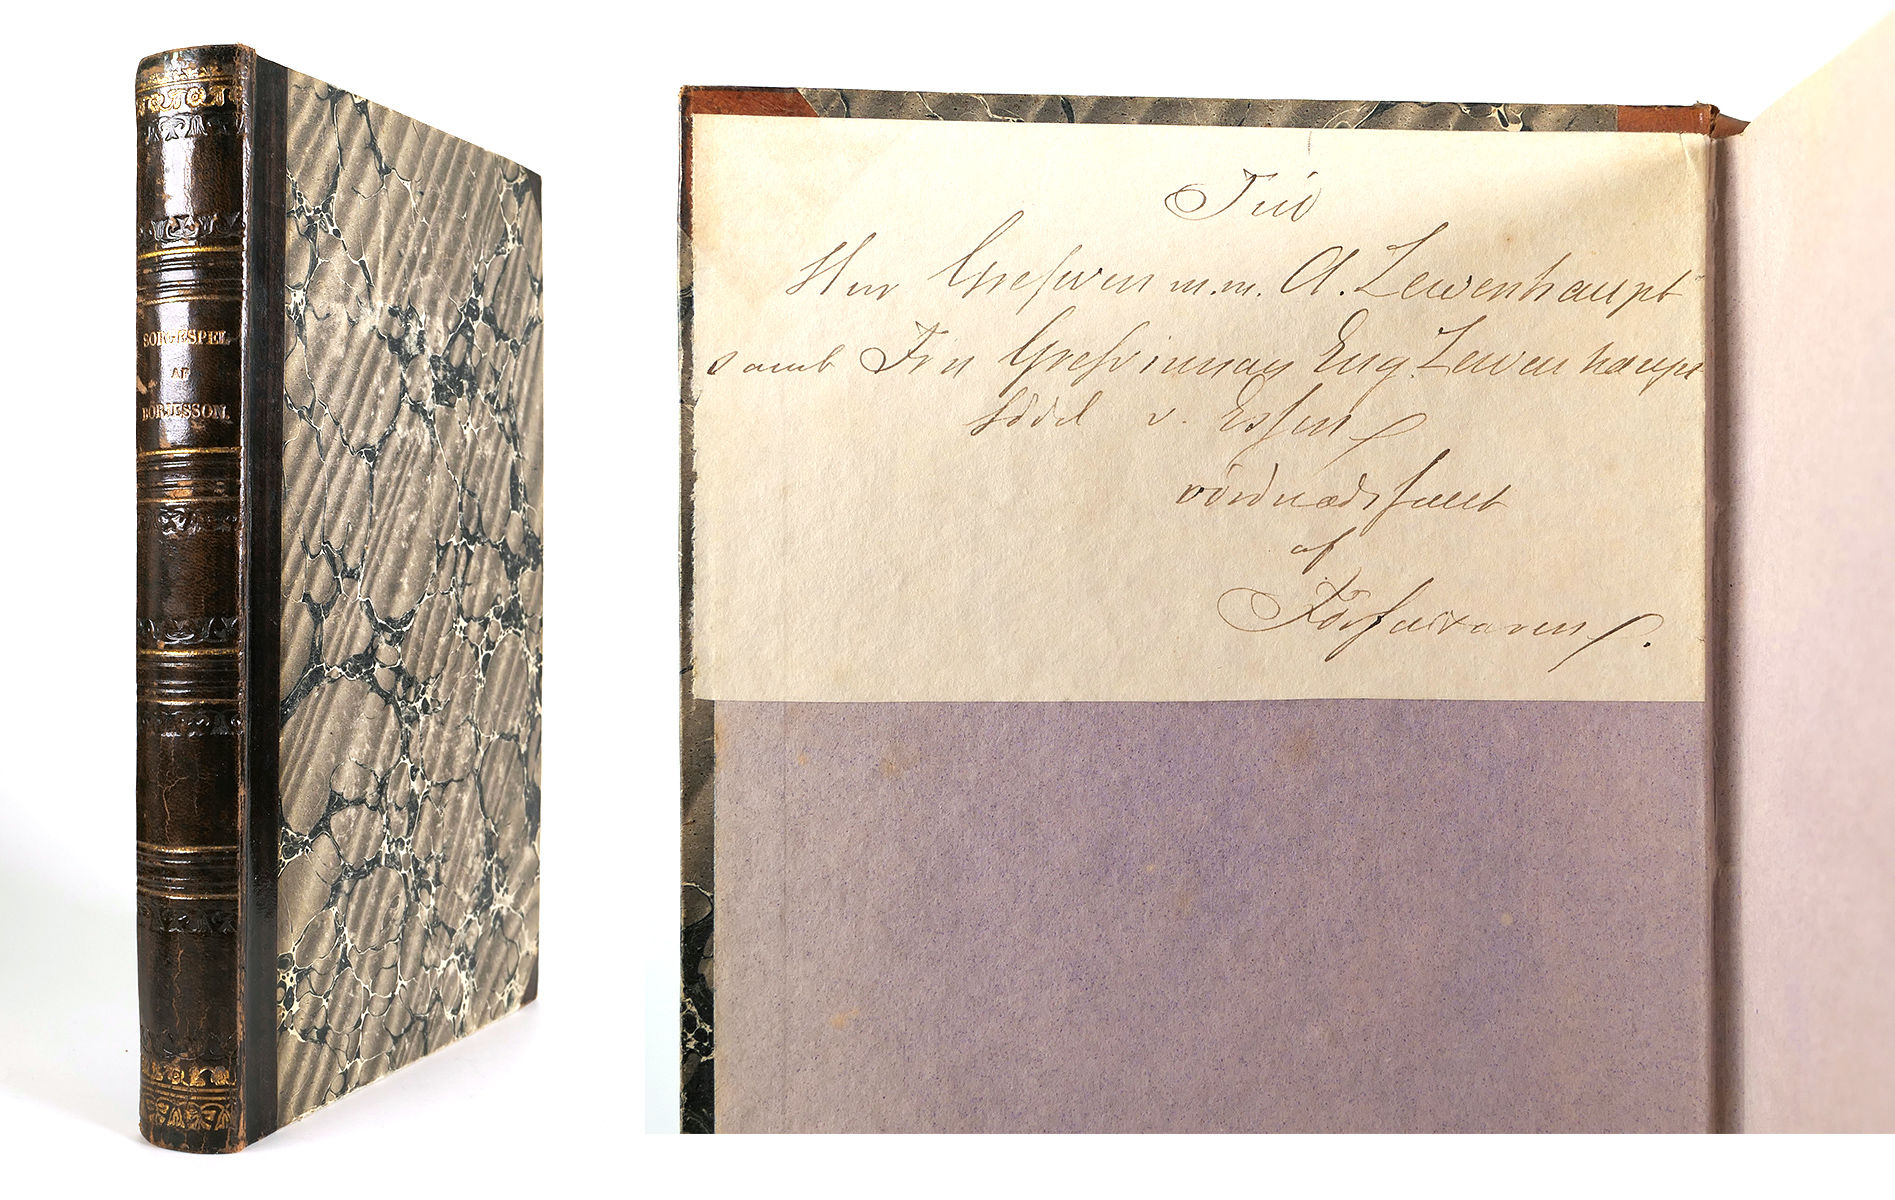 SORGESPEL
AF
BÖRJESSON.
Till
Herr Grefven m.m. A. Lewenhaupt
samt Fru Grefvinnan Eug. Lewenhaupt
född v. Essen
vördnadsfullt
af
Författaren.